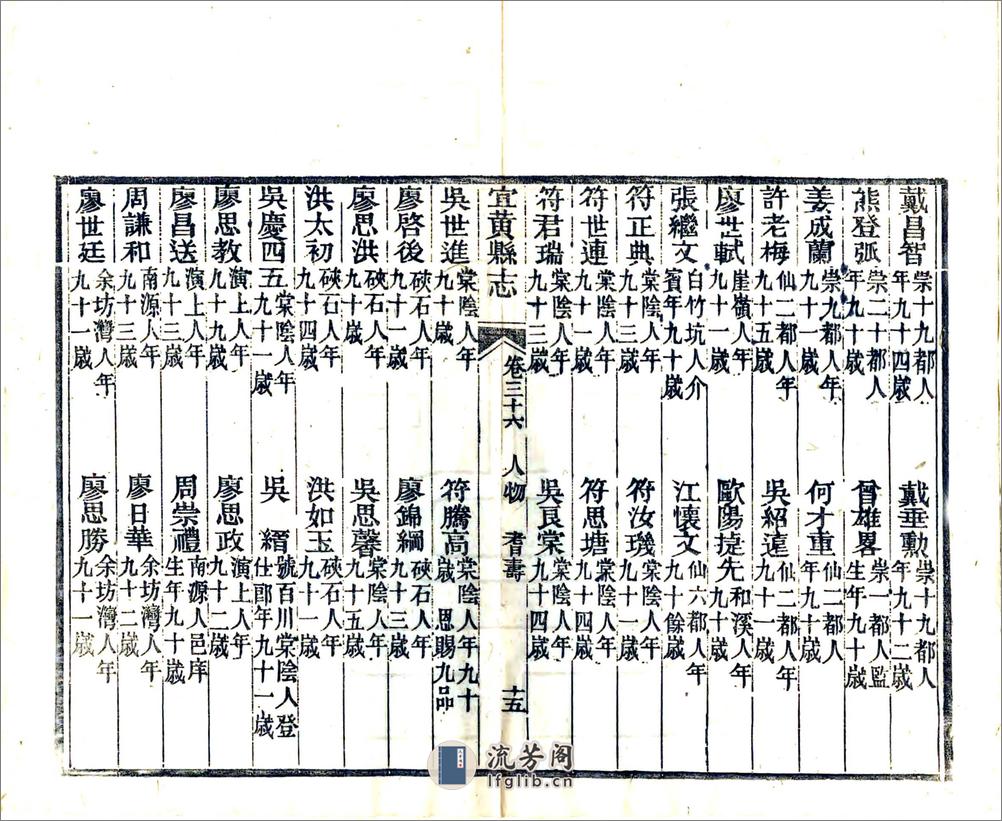 戴昌智 崇十九都人年九十四歲 戴垂勲 崇十九都人年九十二歲
熊登弧 崇二十都人年九十歲 曾雄畧 崇一都人監生年九十歲
姜成蘭 崇九都人年九十一歲 何才重 仙二都人年九十歲
許老梅 仙二都人年九十五歲 吳紹遠 仙二都人年九十一歲
廖世軾 崖嶺人年九十一歲 歐陽捷先 和溪人年九十歲
張繼文 白竹坑人介賓年九十歲 江懷文 仙六都人年九十餘歲
符正典 棠陰人年九十三歲 符汝璣 棠陰人年九十一歲
符世連 棠陰人年九十一歲 符思塘 棠陰人年九十四歲
符君瑞 棠陰人年九十三歲 吳良棠 棠陰人年九十四歲
宜黄縣志 卷三十六 人物 耆壽 十五
吳世進 棠陰人年九十歲 符騰高 棠陰人年九十歲 恩賜九品
廖啓後 硤石人年九十一歲 廖錦綱 硤石人年九十三歲
廖思洪 硤石人年九十歲 吳思馨 棠陰人年九十五歲
洪太初 硤石人年九十四歲 洪如玉 硤石人年九十一歲
吳慶四五 棠陰人年九十一歲 吳縉 號百川棠陰人登仕郎年九十一歲
廖思教 演上人年九十歲 廖思政 演上人年九十二歲
廖昌送 演上人年九十三歲 周崇禮 南源人邑庠生年九十歲
周謙和 南源人年九十三歲 廖日華 余坊灣人年九十二歲
廖世廷 余坊灣人年九十一歲 廖思勝 余坊灣人年九十一歲
流芳阁
lfglib.cn